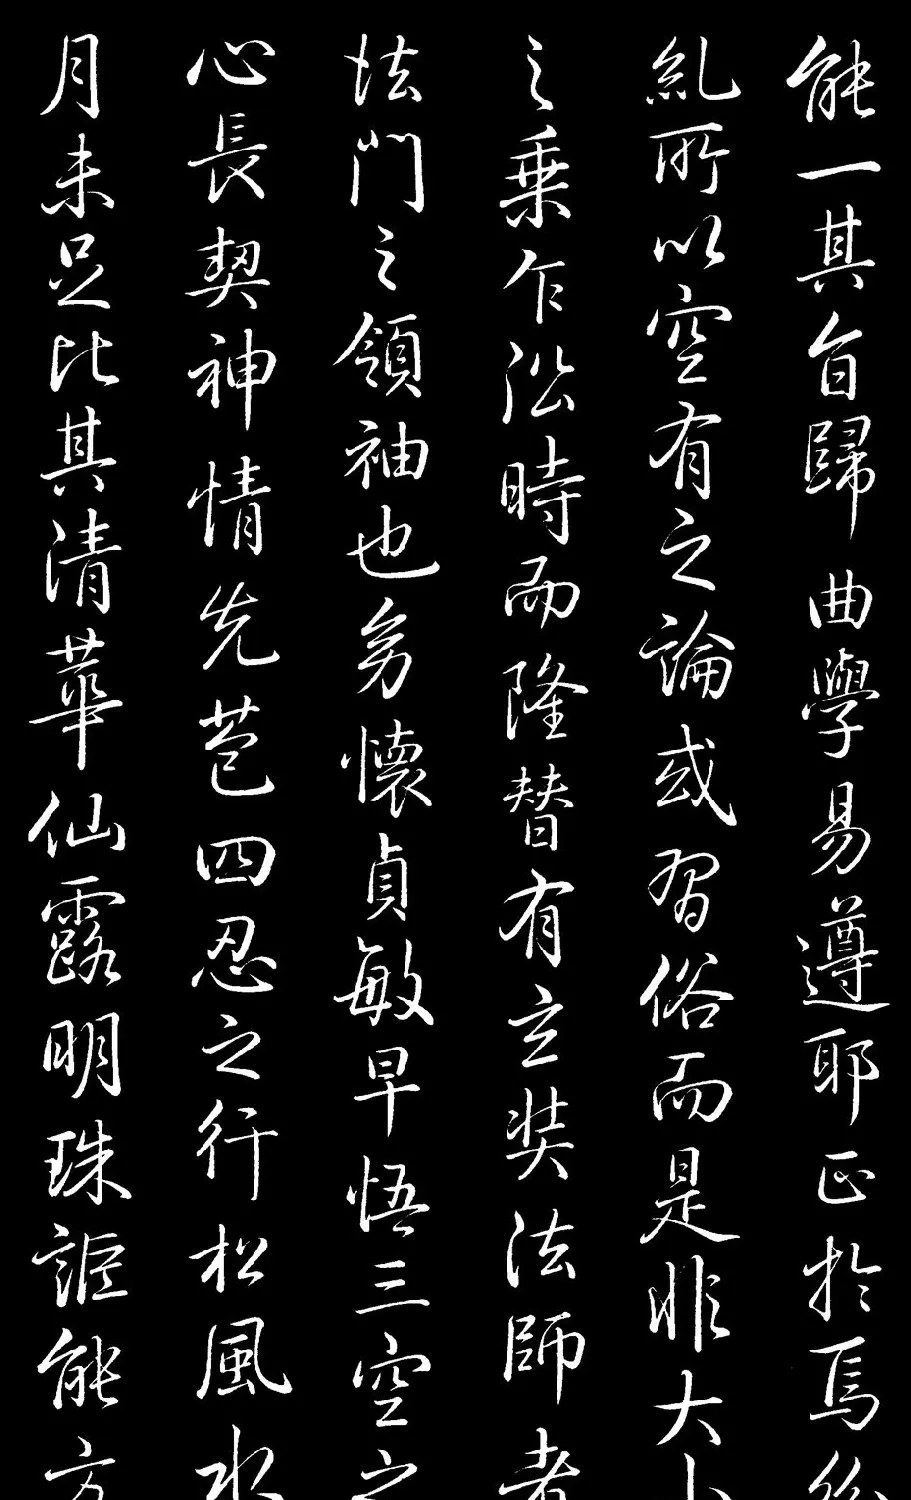 能一其旨歸曲學易遵耶正於焉紛
糺所以空有之論或習俗而是非大小
之乘乍訟時而隆替有玄奘法師者
法門之領袖也幼懷貞敏早悟三空之
心長契神情先苞四忍之行松風水
月未足比其清華仙露明珠詎能方